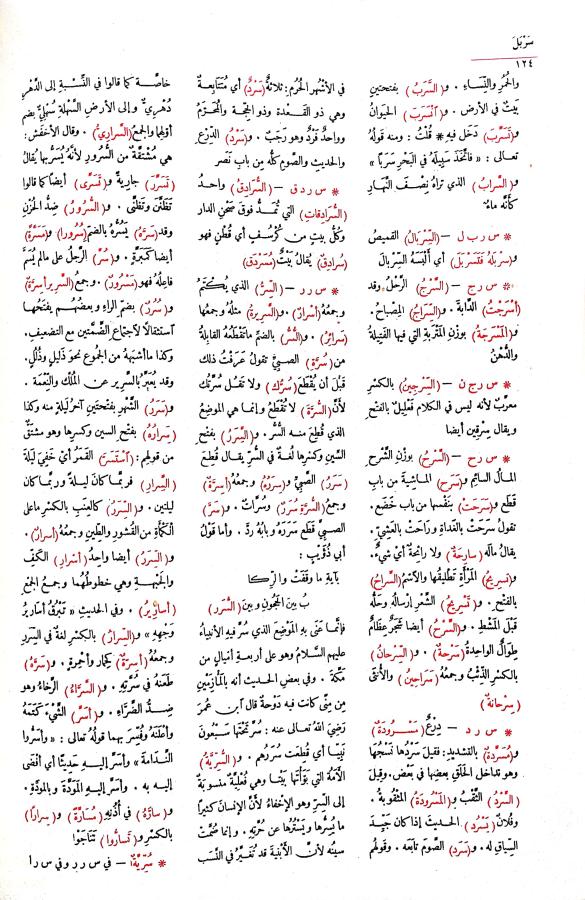 سَرْبَلَ
١٢٤
والحُمُرِ والنِّسَاءِ . و(السَّرَبُ) بفتحتين
بَيْتٌ في الأرض . و(ٱنْسَرَبَ) الحَيَوانُ
و(تَسَرَّبَ) دَخَل فيه * قُلْتُ : ومنه قولُهُ
تعالى : « فاتَّخَذَ سَبِيلَهُ في البَحْرِ سَرَبًا »
و(السَّرابُ) الذي تراهُ نِصْفَ النَّهارِ
كأنَّه ماءٌ
* س ر ب ل — (السِّرْبالُ) القميصُ
و(سَرْبَلَهُ فَتَسَرْبَلَ) أي أَلْبَسَهُ السِّرْبالَ
* س ر ج — (السَّرْجُ) الرَّحْلُ وقد
(أَسْرَجْتُ) الدَّابَّةَ . و(السِّرَاجُ) المِصْباحُ .
و(المَسْرَجَةُ) بوزْنِ المَتْرَبَةِ التي فيها الفَتِيلَةُ
والدُّهْنُ
* س ر ج ن — (السِّرْجِينُ) بالكسْرِ
معربٌ لأنه ليس في الكلام فَعْلِيلٌ بالفتح
ويقال سِرْقِين أيضا
* س ر ح — (السَّرْحُ) بوزْنِ الشَّرْحِ
المالُ السائمُ و(سَرَحَ) الماشِيةَ من باب
قَطَع و(سَرَحَتْ) بنَفْسها من باب خَضَع .
تقول سَرَحَتْ بالغَداةِ وَرَاحَتْ بالعَشِيِّ .
يقالُ مالَه (سارِحَةٌ) ولا رائحَةٌ أيْ شيءٌ .
و(تَسريحُ) المرْأةِ تَطْليقُها والاَسْمُ (السَّراحُ)
بالفتحِ . و(تَسْرِيحُ) الشَّعْرِ إرْسالُهُ وحَلُّه
قَبْلَ المَشْطِ . و(السَّرْحُ) أيضا شَجَرٌ عِظَامٌ
طِوَالٌ الواحدَةُ (سَرْحَةٌ) . و(السِّرْحانُ)
بالكسْرِ الذِّئْبُ وجمعُهُ (سَراحِينُ) والأُنْثى
(سِرْحانةٌ)
* س ر د — دِرْعٌ (مَسْرُودَةٌ)
و(مُسَرَّدَةٌ) بالتشديدِ : فقيلَ سَرْدُها نَسْجُها
وهو تداخُل الحَلَقِ بعضِها في بَعْضٍ . وقيلَ
(السَّرْدُ) الثَّقْبُ و(المَسْرُودَةُ) المثقُوبَةُ .
وفُلانٌ (يَسْرُدُ) الحديثَ إذا كان جَيِّدَ
السِّياقِ له . و(سَرَدَ) الصَّوْمَ تابَعَه . وقولُهم
في الأشْهُرِ الحُرُمِ : ثلاثةٌ (سَرْدٌ) أي مُتَتَابِعةٌ
وهي ذو القَعْدة وذو الحِجّةِ والمحَرَّمُ
وواحدٌ فَرْدٌ وهو رَجَبٌ . و(سَرْدُ) الدِّرْعِ
والحديثِ والصَّومِ كلُّه من باب نَصَر
* س ر د ق — (السُّرَادِقُ) واحدُ
(السُّرَادِقاتِ) التي تُمَدُّ فوقَ صَحْنِ الدار
وكلُّ بيتٍ من كُرْسُفٍ أي قُطْنٍ فهو
(سُرادِقٌ) يُقالُ بيْتٌ (مُسَرْدَقٌ)
* س ر ر — (السِّرُّ) الذي يُكْتَمُ
وجمعُهُ (أسْرارٌ) . و(السَّرِيرةُ) مثلُهُ وجمعُها
(سَرائِرُ) . و(السُّرُّ) بالضمِّ ما تَقْطَعُه القابِلةُ
من (سُرَّةِ) الصبيِّ تقول عَرَفْتُ ذلك
قَبْلَ أن يُقْطَعَ (سُرُّكَ) ولا تَقُلْ سُرَّتُكَ
لأنّ (السُّرَّةَ) لا تُقْطَعُ وإنما هي الموضِعُ
الذي قُطِعَ منه السُّر . و(السِّرَرُ) بفتحِ
السِّينِ وكسرِها لُغةٌ في السُّرِّ يقالُ قُطِعَ
(سَرَرُ) الصَّبِيِّ و(سِرَرُهُ) وجمعُهُ (أسِرَّةٌ)
وجمع (السُّرَّةِ سُرَرٌ) و(سُرَّاتٌ) . و(سَرَّ)
الصبيَّ قَطَع سَرَرَه وبابُهُ ردَّ . وأما قولُ
أبي ذُؤَيْب :
بآيةِ ما وقَفَتْ والرِّكا
بُ بين الحَجُونِ وبين (السُّرَر)
فإنَّما عَنَى به المَوْضِعَ الذي سُرَّ فيه الأنبِياءُ
عليهم السَّلامُ وهو على أربعةِ أمْيالٍ من
مَكَّةَ . وفي بعضِ الحديث أنه بالمَأْزِمَيْنِ
مِن مِنًى كانت فيه دَوْحَةٌ قال ابن عُمَر
رَضِيَ اللهُ تعالى عنه : سُرَّ تَحْتَها سَبْعُونَ
نَبِيًّا أي قُطِعَت سُرَرُهم . و(السُّرِّيَّةُ)
الأَمَةُ التي بَوَّأْتَها بَيْتًا وهي فُعْلِيَّةٌ منسُوبَةٌ
إلى السِّرِّ وهو الإخْفاءُ لأنّ الإنسانَ كثيرًا
ما يُسِرُّها ويَسْتُرُها عن حُرَّتِه . وإنما ضُمَّتْ
سينُه لأنّ الأبْنيةَ قد تُغَيَّرُ في النَّسَبِ
خاصَّةً كما قالوا في النِّسْبةِ إلى الدَّهْرِ
دُهْرِيٌّ وإلى الأرضِ السَّهْلةِ سُهْلِيٌّ بضمِ
أوَّلِهما والجمعُ (السَّرارِيُّ) . وقال الأخفشُ :
هي مُشْتَقَّةٌ من السُّرورِ لأنّه يُسَرُّ بها يُقالُ
(تَسَرَّرَ) جاريةً و(تَسَرَّى) أيضًا كما قالوا
تَظَنَّنَ وتَظَنَّى . و(السُّرورُ) ضِدُّ الحُزْنِ
وقد (سَرَّهُ) يَسُرُّه بالضمِ (سُرورا) و(مَسَرَّةً)
أيضا كَمَبَرَّةٍ . و(سُرَّ) الرجلُ على ما لم يُسَمَّ
فاعِلُهُ فهو (مَسْرُورٌ) . وجمع (السَّرِيرِ أسِرَّةٌ)
و(سُرُرٌ) بضمِ الراءِ وبعضُهم يفتَحُها
ٱستثقالًا لاجتماعِ الضَّمَّتينِ مع التضعيفِ .
وكذا ما أشبهَه من الجُموعِ نحوُ ذَليلٍ وذُلُلٍ .
وقد يُعَبَّرُ بالسَّريرِ عن المُلْكِ والنِّعْمة .
و(سَرَرُ) الشَّهْرِ بفتحتين آخرُ ليلةٍ منه وكذا
(سَرارُهُ) بفتح السين وكسرها وهو مشتقٌّ
من قولِهم : (ٱسْتَسَرَّ) القَمَرُ أي خَفِيَ لَيلةَ
(السِّرارِ) فربَّما كان ليلةً وربما كان
ليلتينِ . و(السِّرَرُ) كالعِنَبِ بالكسرِ ما على
الكَمْأةِ من القُشورِ والطّينِ وجمعُه (أسرارٌ) .
و(السِّرَرُ) أيضا واحدُ (أسْرارِ) الكَفِّ
والجَبْهةِ وهي خطوطُهُما وجمعُ الجمعِ
(أسارِيرُ) . وفي الحديثِ « تَبْرُقُ أسارِيرُ
وَجْهِهِ » و(السِّرارُ) بالكسْرِ لغةٌ في السِّرَرِ
وجمعُه (أسِرَّةٌ) كحِمار وأَحْمِرةٍ . و(سَرَّهُ)
طَعَنَهُ في سُرَّتِهِ . و(السَّرَّاءُ) الرَّخاءُ وهو
ضِدُّ الضَّرَّاءِ . و(أَسَرَّ) الشَّيْءَ كَتَمَهُ
وأعْلَنَهُ وفُسِّرَ بهما قولُهُ تعالى : « وأَسَرُّوا
النَّدامةَ » وأَسَرَّ إليه حَدِيثًا أي أفْضَى
إليه به . وأَسَرَّ إليهِ المَوَدَّةَ وبالمَوَدَّةِ .
و(سارَّهُ) في أُذُنِه (مُسَارَّةً) و(سِرارًا)
بالكسْرِ و(تَسارُّوا) تَنَاجَوْا
* سُرِّيَّة — في س ر ر وفي س ر ا